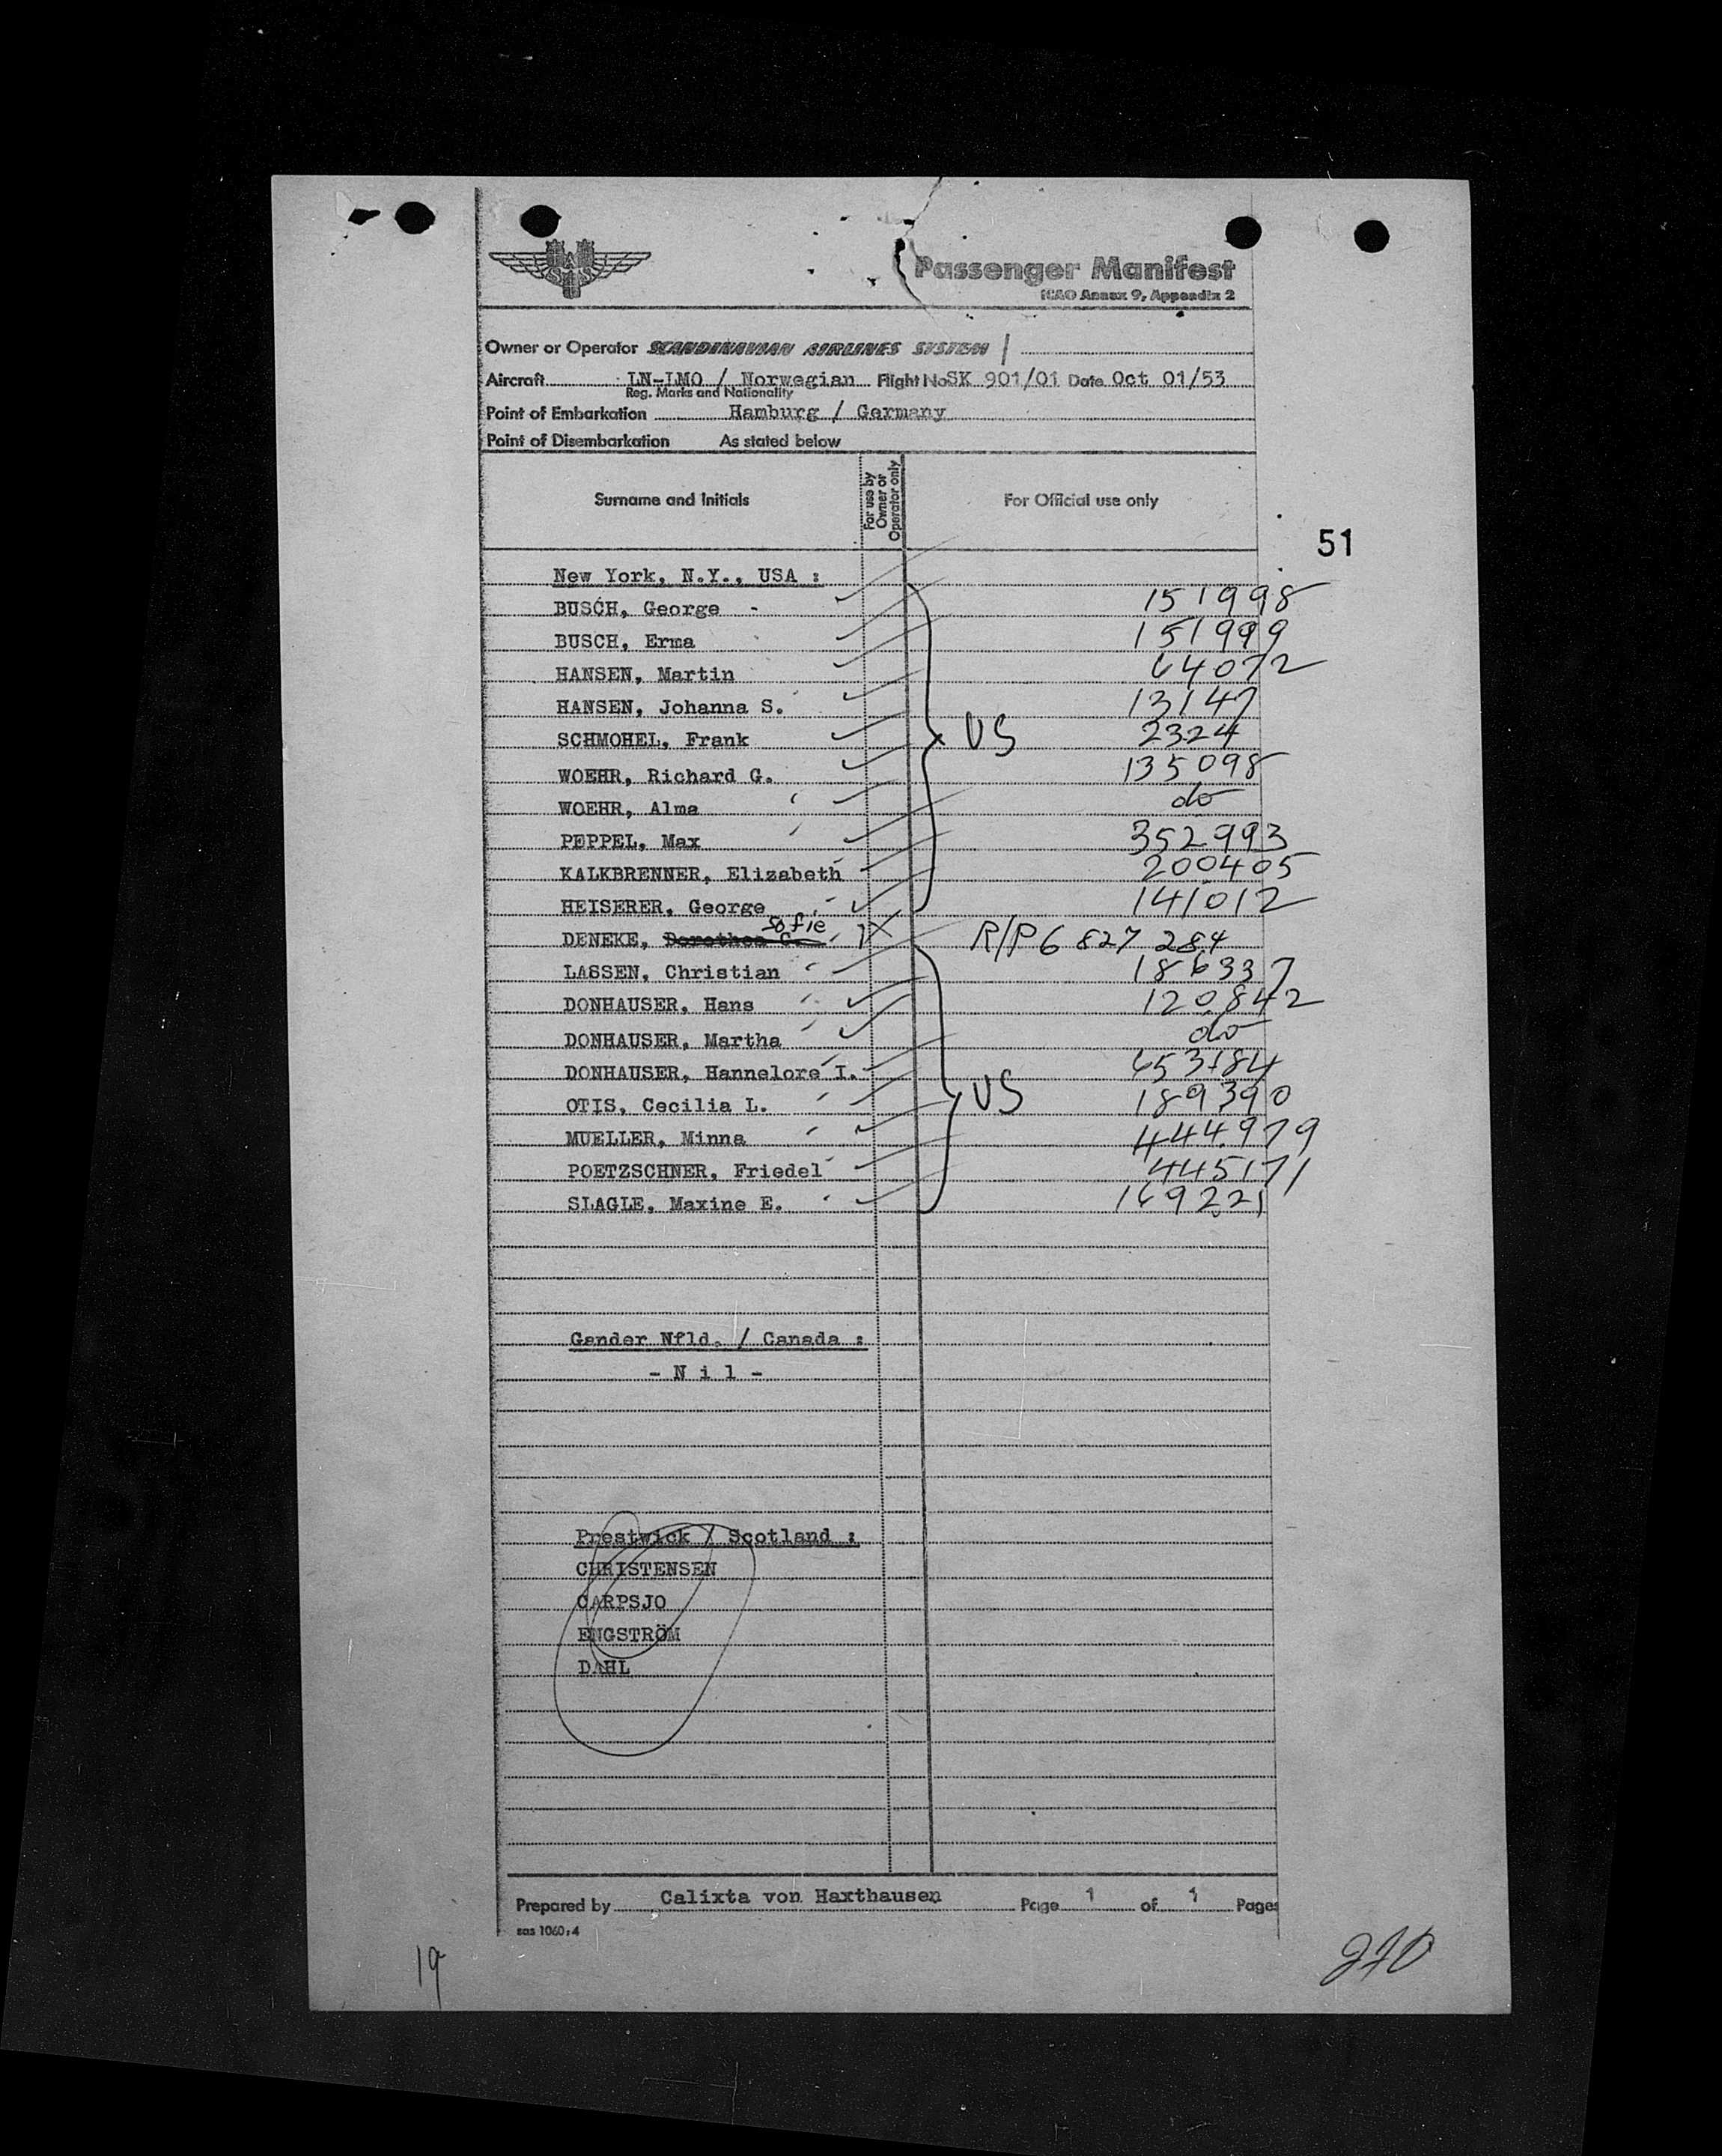 SAS
Passenger Manifest
ICAO Annex 9, Appendix 2
Owner or Operator SCANDINAVIAN AIRLINES SYSTEM
Aircraft LN-LMO / Norwegian Flight No SK 901/01 Date Oct 01/53
Reg. Marks and Nationality
Point of Embarkation Hamburg / Germany
Point of Disembarkation As stated below
Surname and Initials For use by Owner or Operator only For Official use only
51
New York, N.Y., USA :
BUSCH, George - 151998
BUSCH, Erma 151999
HANSEN, Martin 64072
HANSEN, Johanna S. 13147
SCHMOHEL, Frank US 2324
WOEHR, Richard G. 135098
WOEHR, Alma do
PEPPEL, Max 352993
KALKBRENNER, Elizabeth 200405
HEISERER, George 141012
DENEKE, Dorothea C. Sofie R/P 6 827 284
LASSEN, Christian 186337
DONHAUSER, Hans 120842
DONHAUSER, Martha do
DONHAUSER, Hannelore I. 653184
OTIS, Cecilia L. US 189390
MUELLER, Minna 444979
POETZSCHNER, Friedel 445171
SLAGLE, Maxine E. 169221
Gander Nfld. / Canada :
- N i l -
Prestwick / Scotland :
CHRISTENSEN
CARPSJO
ENGSTRÖM
DAHL
Prepared by Calixta von Haxthausen Page 1 of 1 Pages
sas 1060:4
19